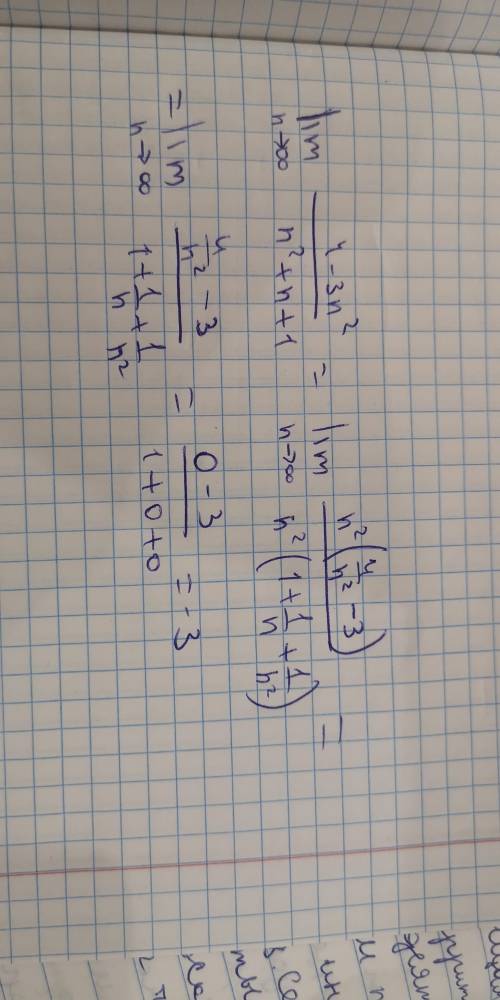 lim n→∞ (4 - 3n²)/(n² + n + 1) = lim n→∞ n²(4/n² - 3)/n²(1 + 1/n + 1/n²) =
= lim n→∞ (4/n² - 3)/(1 + 1/n + 1/n²) = (0 - 3)/(1 + 0 + 0) = -3